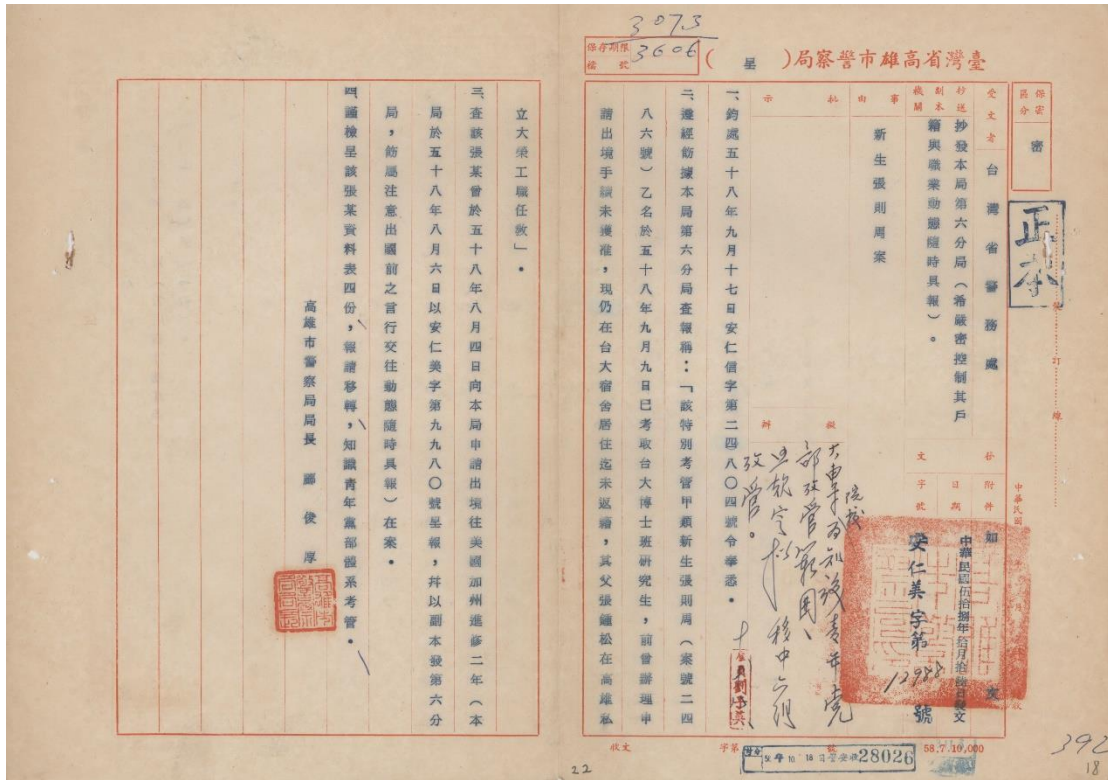 3073
保存期限
檔號
3606
臺灣省高雄市警察局(呈)
保密區分
密
正本
受文者
台灣省警務處
抄送副本機關
抄發本局第六分局(希嚴密控制其戶
籍與職業動態隨時具報)。
事由
新生張則周案
批示
擬辦
文
份
附件
如
文
日期
中華民國伍拾捌年拾月拾陸日發文
字號
安仁美字第12988號
裝訂線
中華民國
一、鈞處五十八年九月十七日安仁信字第二四八〇四號令奉悉。
二、遵經飭據本局第六分局查報稱:「該特別考管甲類新生張則周(案號二四
八六號)乙名於五十八年九月九日已考取台大博士班研究生,前曾辦理申
請出境手續未獲准,現仍在台大宿舍居住迄未返籍,其父張鍾松在高雄私
立大榮工職任教」。
三、查該張某曾於五十八年八月四日向本局申請出境往美國加州進修二年(本
局於五十八年八月六日以安仁美字第九九八〇號呈報,并以副本發第六分
局,飭屬注意出國前之言行交往動態隨時具報)在案。
四、謹檢呈該張某資料表四份,報請移轉,知識青年黨部體系考管。
高雄市警察局局長
俊
收文
字第
號
28026
58.7.10,000
22
392
18